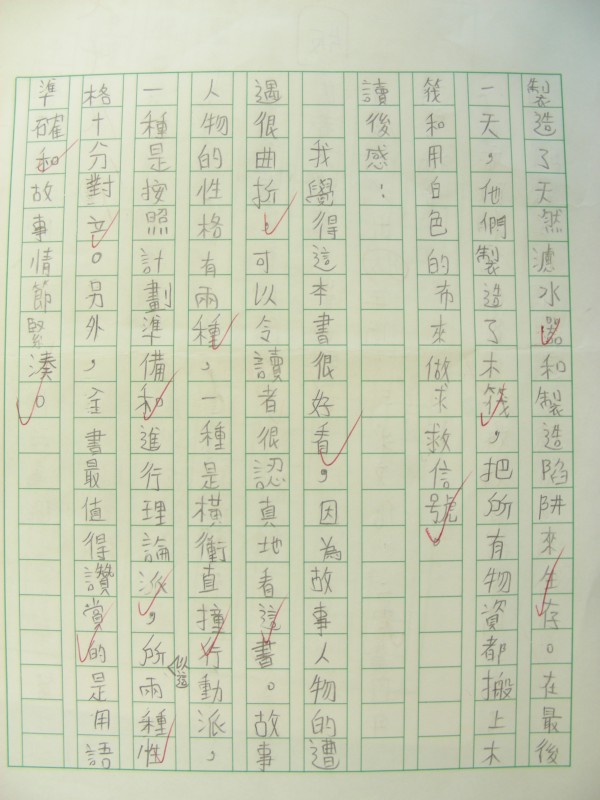 製造了天然濾水器和製造陷阱來生存。在最後
一天，他們製造了木筏，把所有物資都搬上木
筏和用白色的布來做求救信號。
讀後感：
我覺得這本書很好看，因為故事人物的遭
遇很曲折，可以令讀者很認真地看這書。故事
人物的性格有兩種，一種是橫衝直撞行動派，
一種是按照計劃準備和進行理論派，所以這兩種性
格十分對立。另外，全書最值得讚賞的是用語
準確和故事情節緊湊。